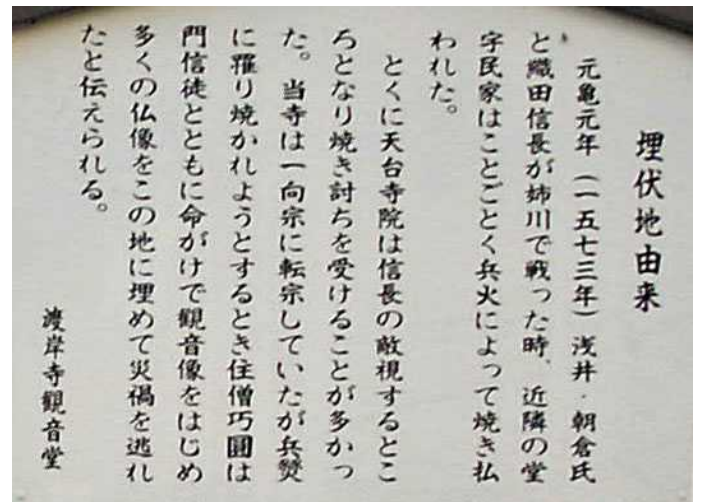 埋伏地由来
元亀元年（一五七三年）浅井・朝倉氏
と織田信長が姉川で戦った時、近隣の堂
宇民家はことごとく兵火によって焼き払
われた。
とくに天台寺院は信長の敵視するとこ
ろとなり焼き討ちを受けることが多かっ
た。当寺は一向宗に転宗していたが兵燹
に罹り焼かれようとするとき住僧巧圓は
門信徒とともに命がけで観音像をはじめ
多くの仏像をこの地に埋めて災禍を逃れ
たと伝えられる。
渡岸寺観音堂